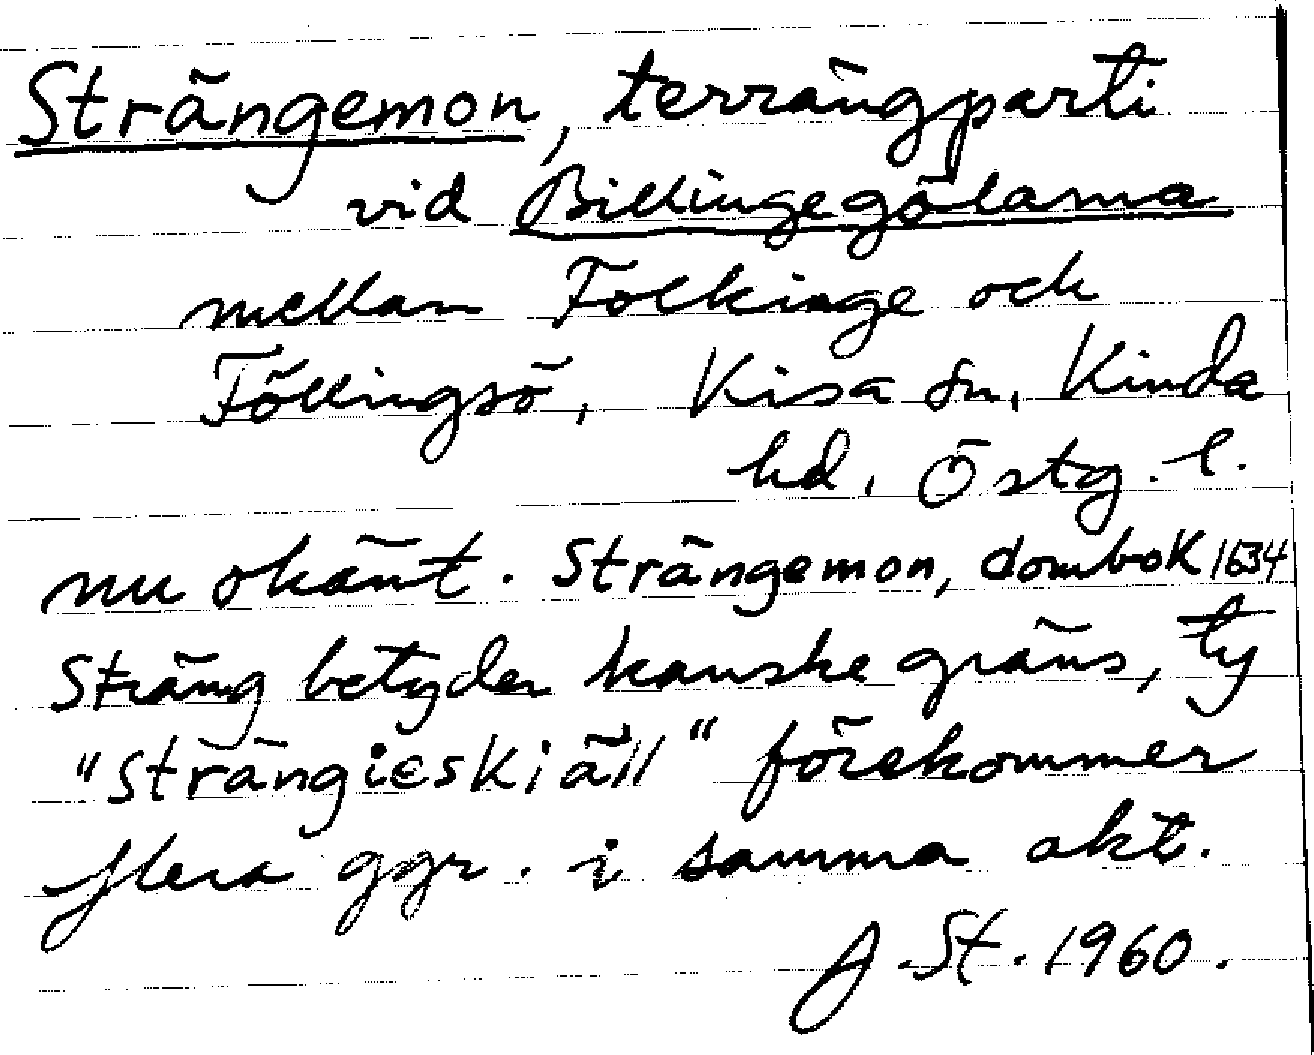 Strängemon, terrängparti
vid Billingegölarna
mellan Folkinge och
Föllingsö, Kisa sn, Kinda
hd, Östg. l.
nu okänt. Strängemon, dombok 1634
Sträng betyder kanske gräns, ty
"Strängieskiäll" förekommer
flera ggr. i samma akt.
J. St. 1960.